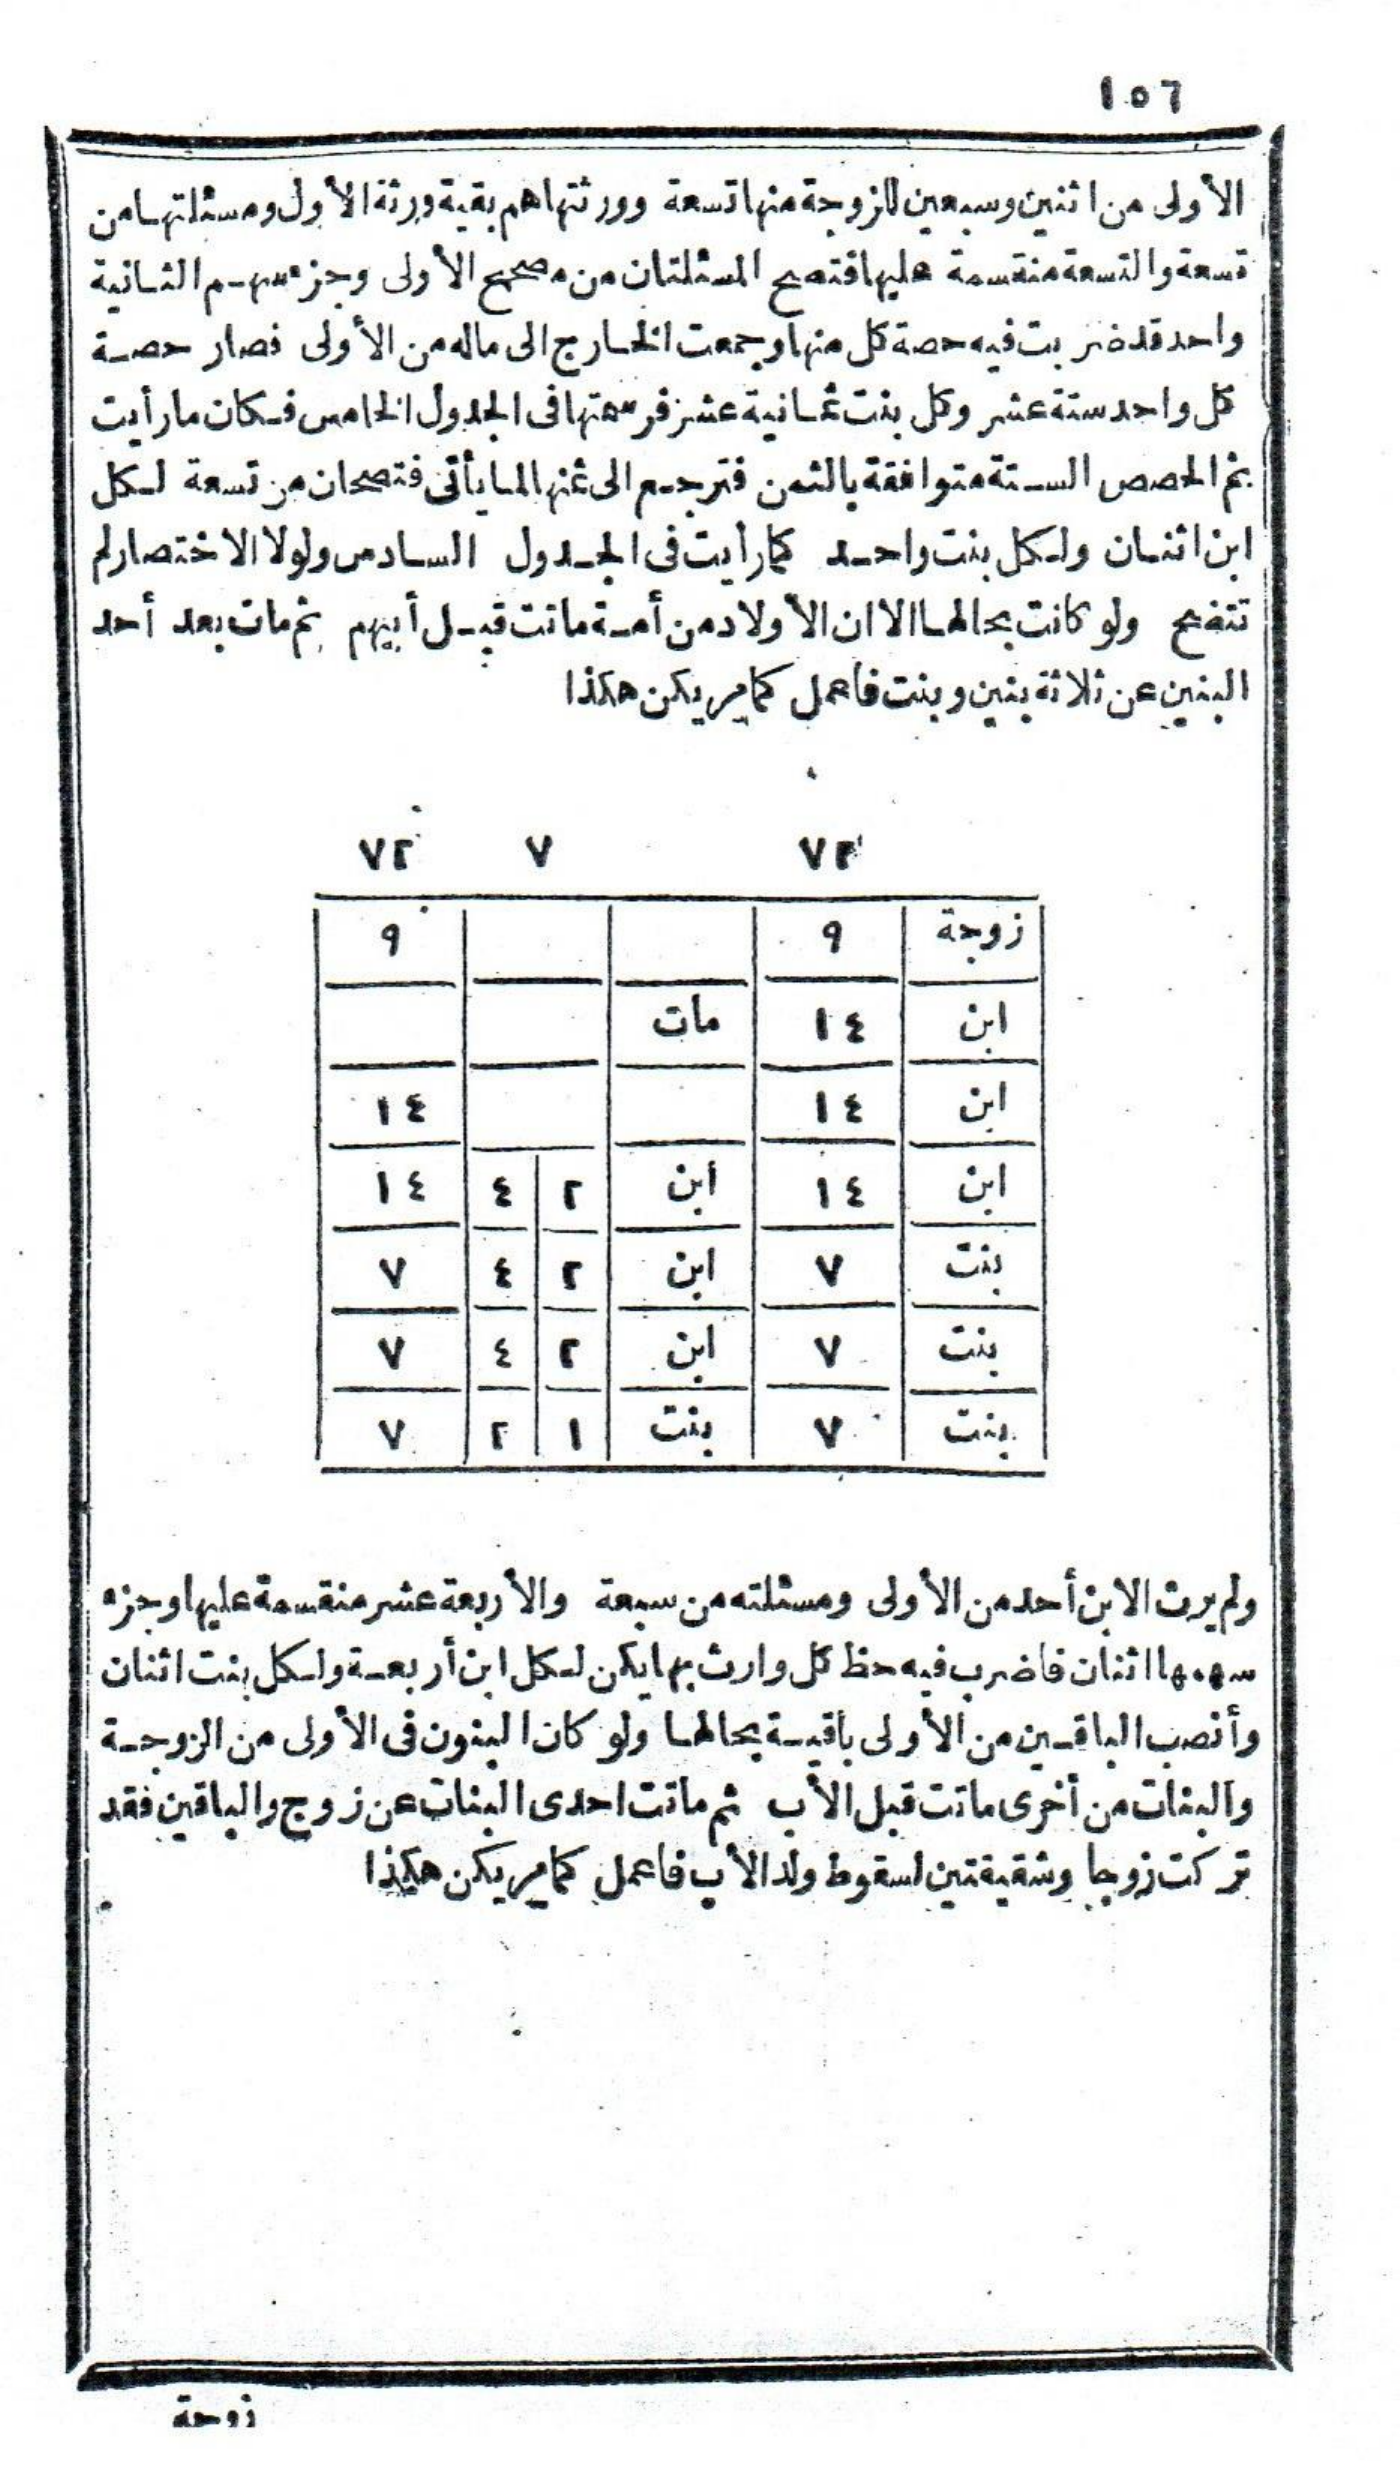 ١٥٦
الأولى من اثنين وسبعين للزوجة منها تسعة وورثتها هم بقية ورثة الأول ومسئلتها من
تسعة والتسعة منقسمة عليها فتصح المسئلتان من مصحح الأولى وجزء سهم الثانية
واحد قد ضربت فيه حصة كل منها وجمعت الخارج الى ماله من الأولى فصار حصة
كل واحد ستة عشر وكل بنت ثمانية عشر فرسمتها فى الجدول الخامس فكان ما رأيت
ثم الحصص الستة متوافقة بالثمن فترجع الى ثمنها لما يأتى فتصحان من تسعة لكل
ابن اثنان ولكل بنت واحد كما رأيت فى الجدول السادس ولولا الاختصار لم
تتضح ولو كانت بحالها الا ان الأولاد من أمة ماتت قبل أبيهم ثم مات بعد أحد
البنين عن ثلاثة بنين وبنت فاعمل كما مر يكن هكذا
٧٢ ٧ ٧٢
زوجة ٩ ٩
ابن ١٤ مات
ابن ١٤ ١٤
ابن ١٤ ابن ٢ ٤ ١٤
بنت ٧ ابن ٢ ٤ ٧
بنت ٧ ابن ٢ ٤ ٧
بنت ٧ بنت ١ ٢ ٧
ولم يرث الابن أحد من الأولى ومسئلته من سبعة والأربعة عشر منقسمة عليها وجزء
سهمها اثنان فاضرب فيه حظ كل وارث بها يكن لكل ابن أربعة ولكل بنت اثنان
وأنصب الباقين من الأولى باقية بحالها ولو كان البنون فى الأولى من الزوجة
والبنات من أخرى ماتت قبل الأب ثم ماتت احدى البنات عن زوج والباقين فقد
تركت زوجا وشقيقتين لسقوط ولد الأب فاعمل كما مر يكن هكذا
زوجة